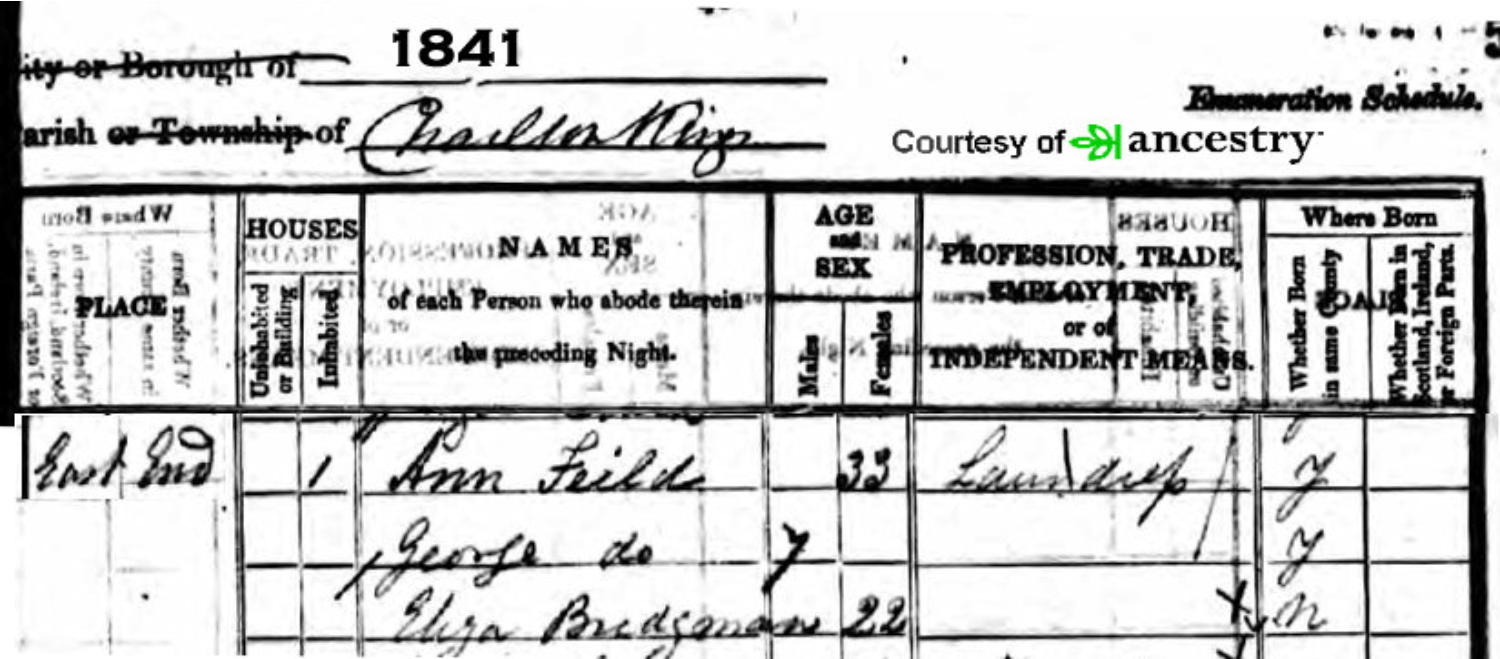 1841
ity or Borough of
Enumeration Schedule.
arish or Township of Charlton Kings
Courtesy of ancestry
PLACE
HOUSES
Uninhabited or Building
Inhabited
NAMES
of each Person who abode therein
the preceding Night.
AGE
and
SEX
Males
Females
PROFESSION, TRADE,
EMPLOYMENT,
or of
INDEPENDENT MEANS.
Where Born
Whether Born in same County
Whether Born in Scotland, Ireland, or Foreign Parts.
East End 1 Ann Feild 33 Laundress y
George do 7 y
Eliza Bridgman 22 n